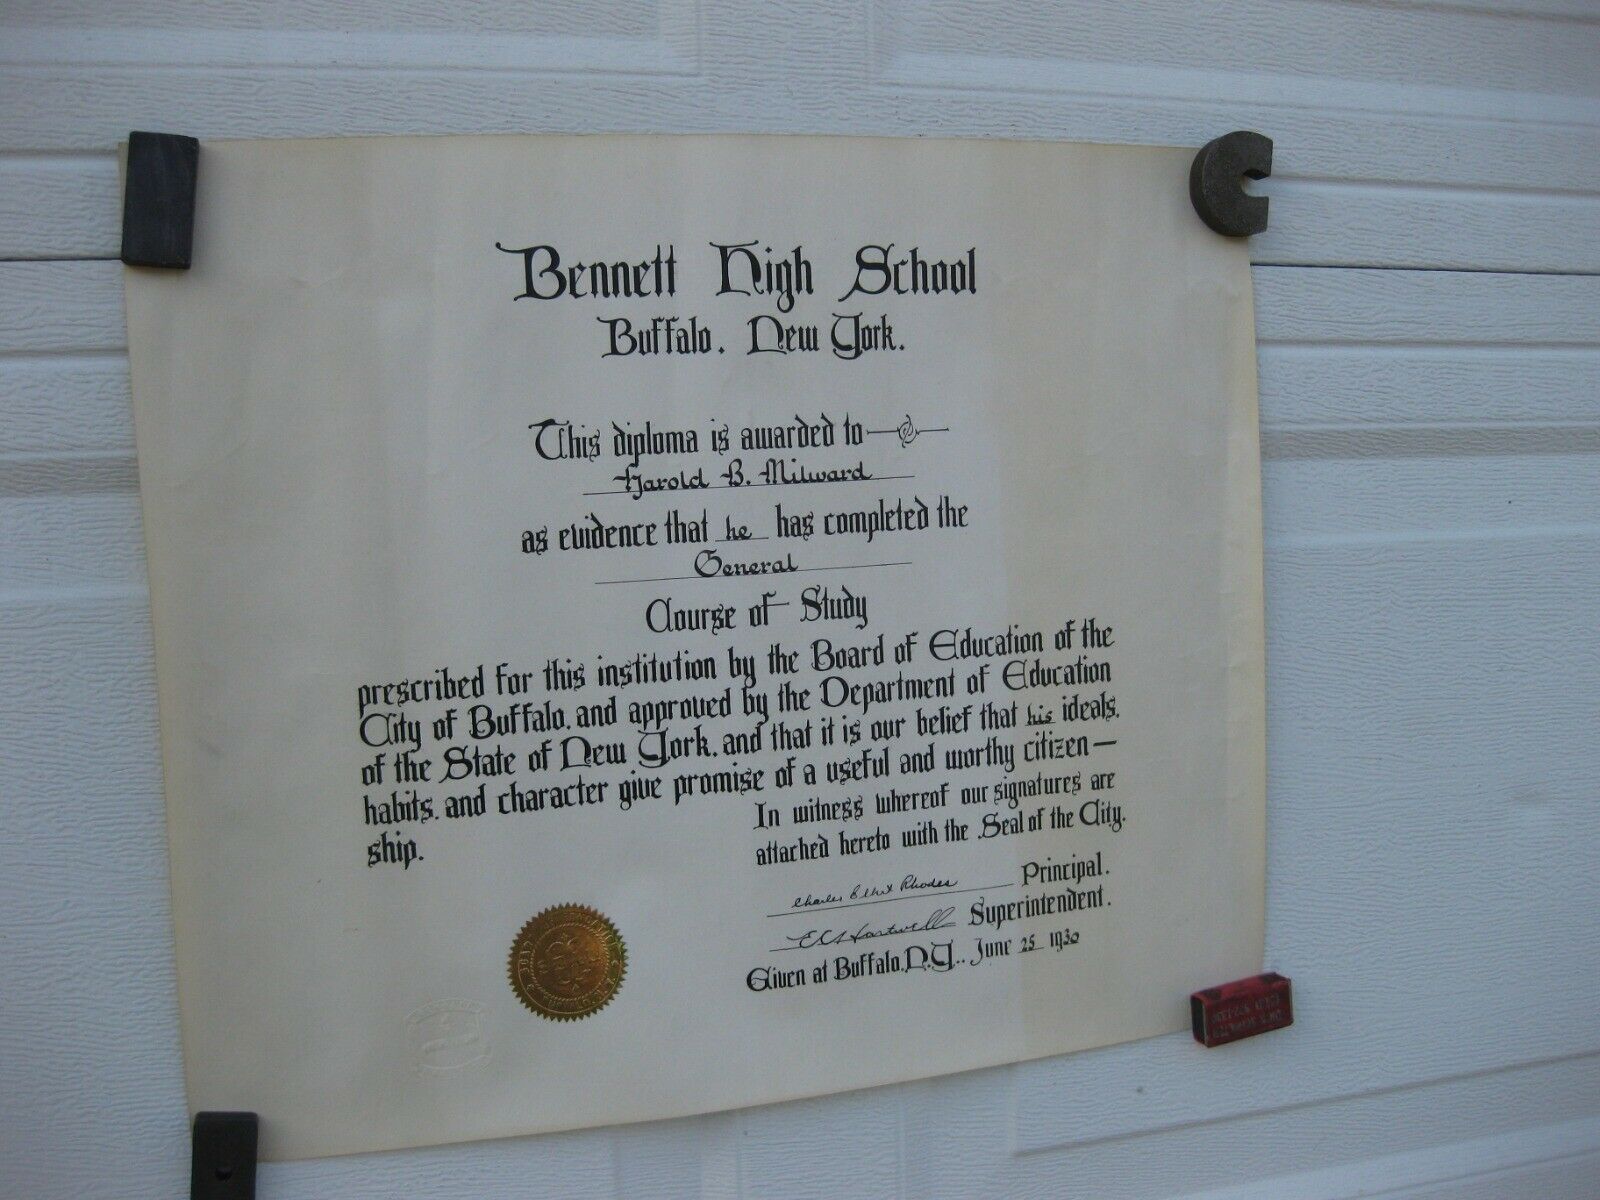 Bennett High School
Buffalo, New York.
This diploma is awarded to
Harold B. Milward
as evidence that he has completed the
General
Course of Study
prescribed for this institution by the Board of Education of the
City of Buffalo, and approved by the Department of Education
of the State of New York, and that it is our belief that his ideals,
habits, and character give promise of a useful and worthy citizen—
ship.
In witness whereof our signatures are
attached hereto with the Seal of the City.
Charles Elbert Rhodes Principal.
E C Hartwell Superintendent.
Given at Buffalo, N.Y., June 25 1930